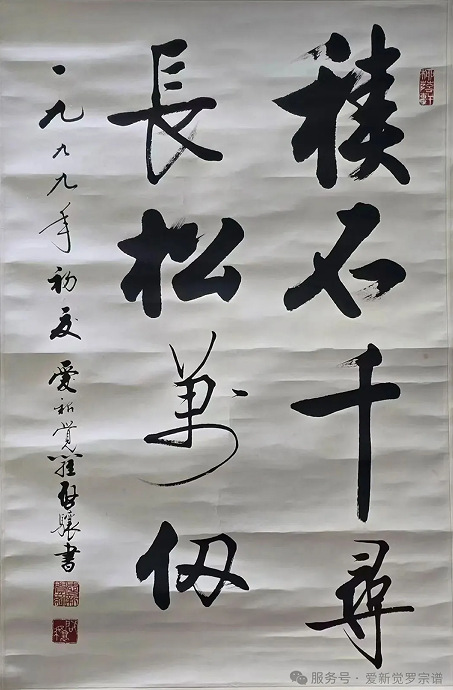 積石千尋
長松萬仞
一九九九年初夏 愛新覺羅啟驤書
服务号 · 爱新觉罗宗谱